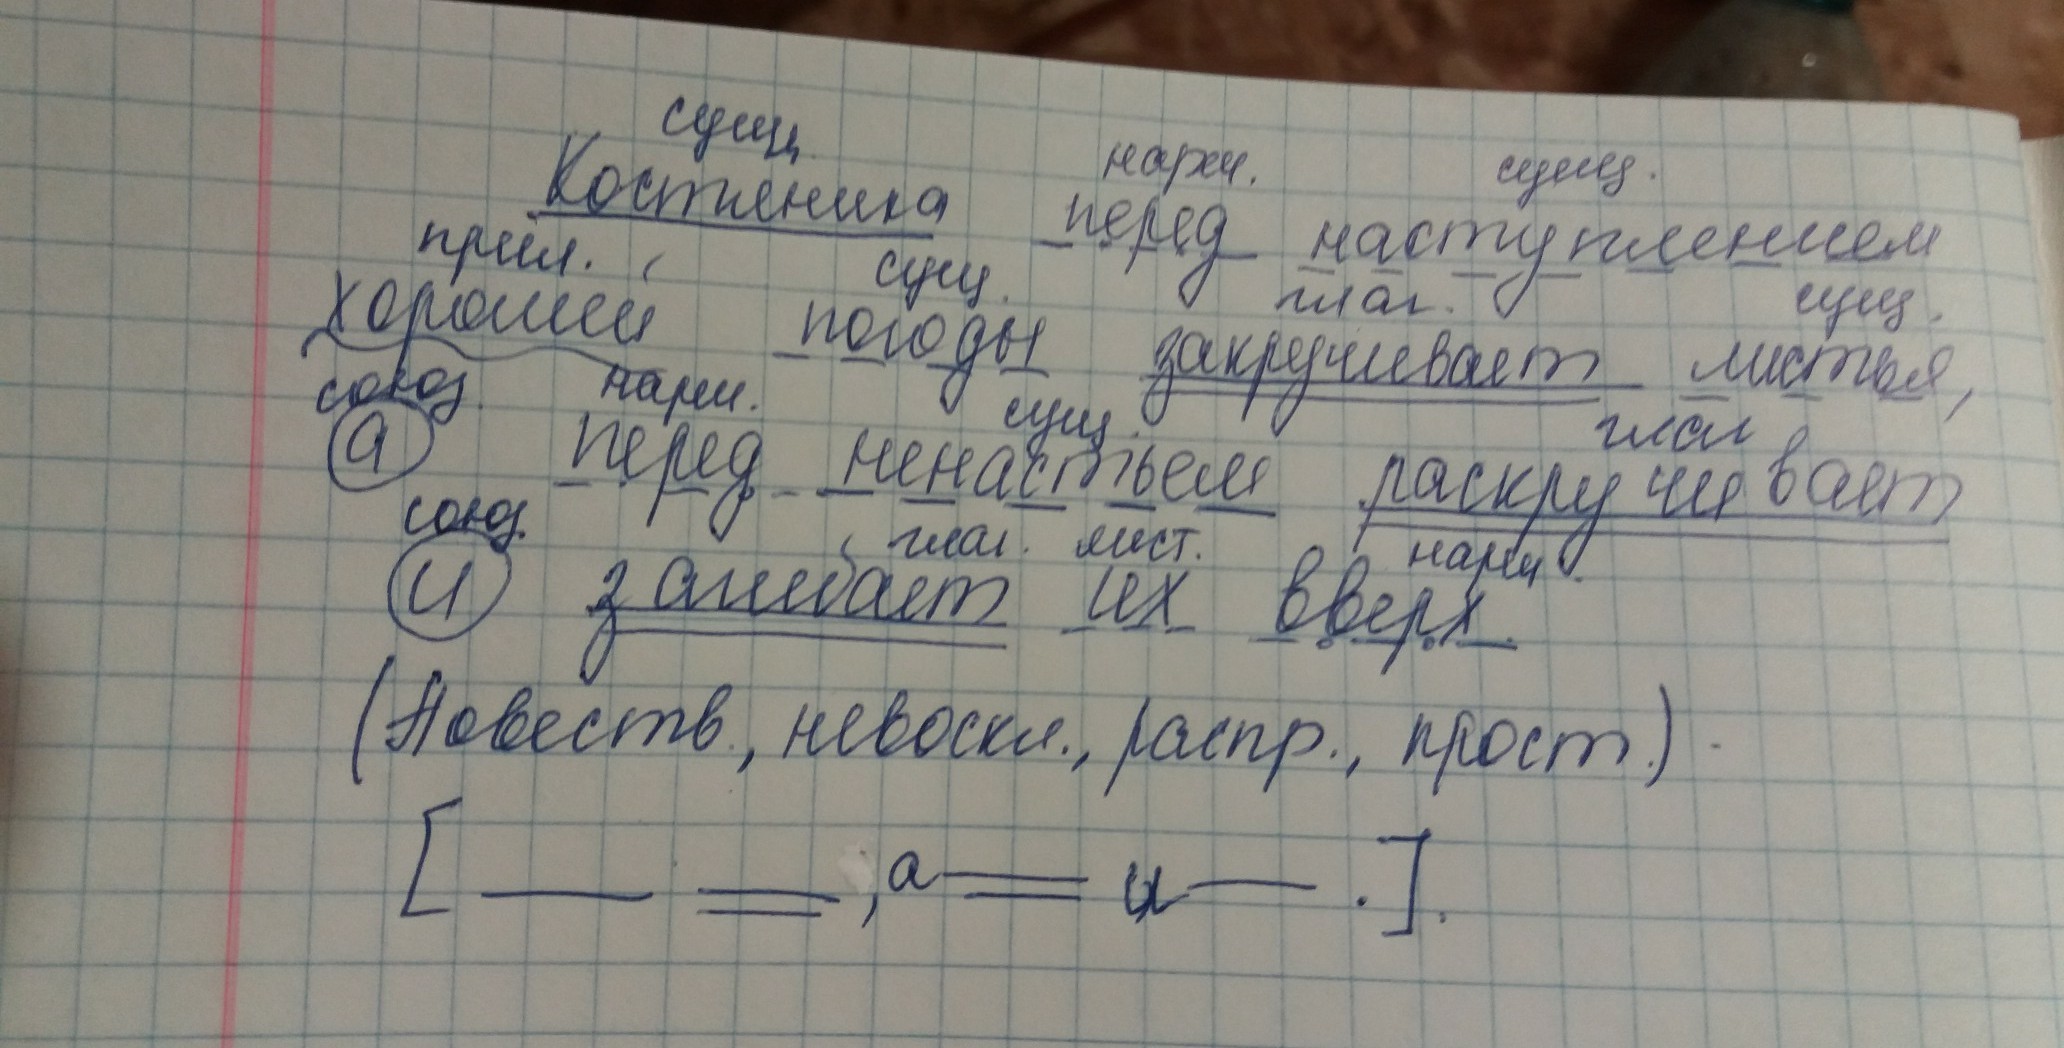 сущ.
Костяника перед наступлением
нареч. сущ.
прил. сущ. глаг. сущ.
хорошей погоды закручивает листья,
союз. нареч. сущ. глаг
а перед ненастьем раскручивает
союз. глаг. мест. нареч.
и загибает их вверх.
(Повеств., невоскл., распр., прост.).
[ , а и . ].